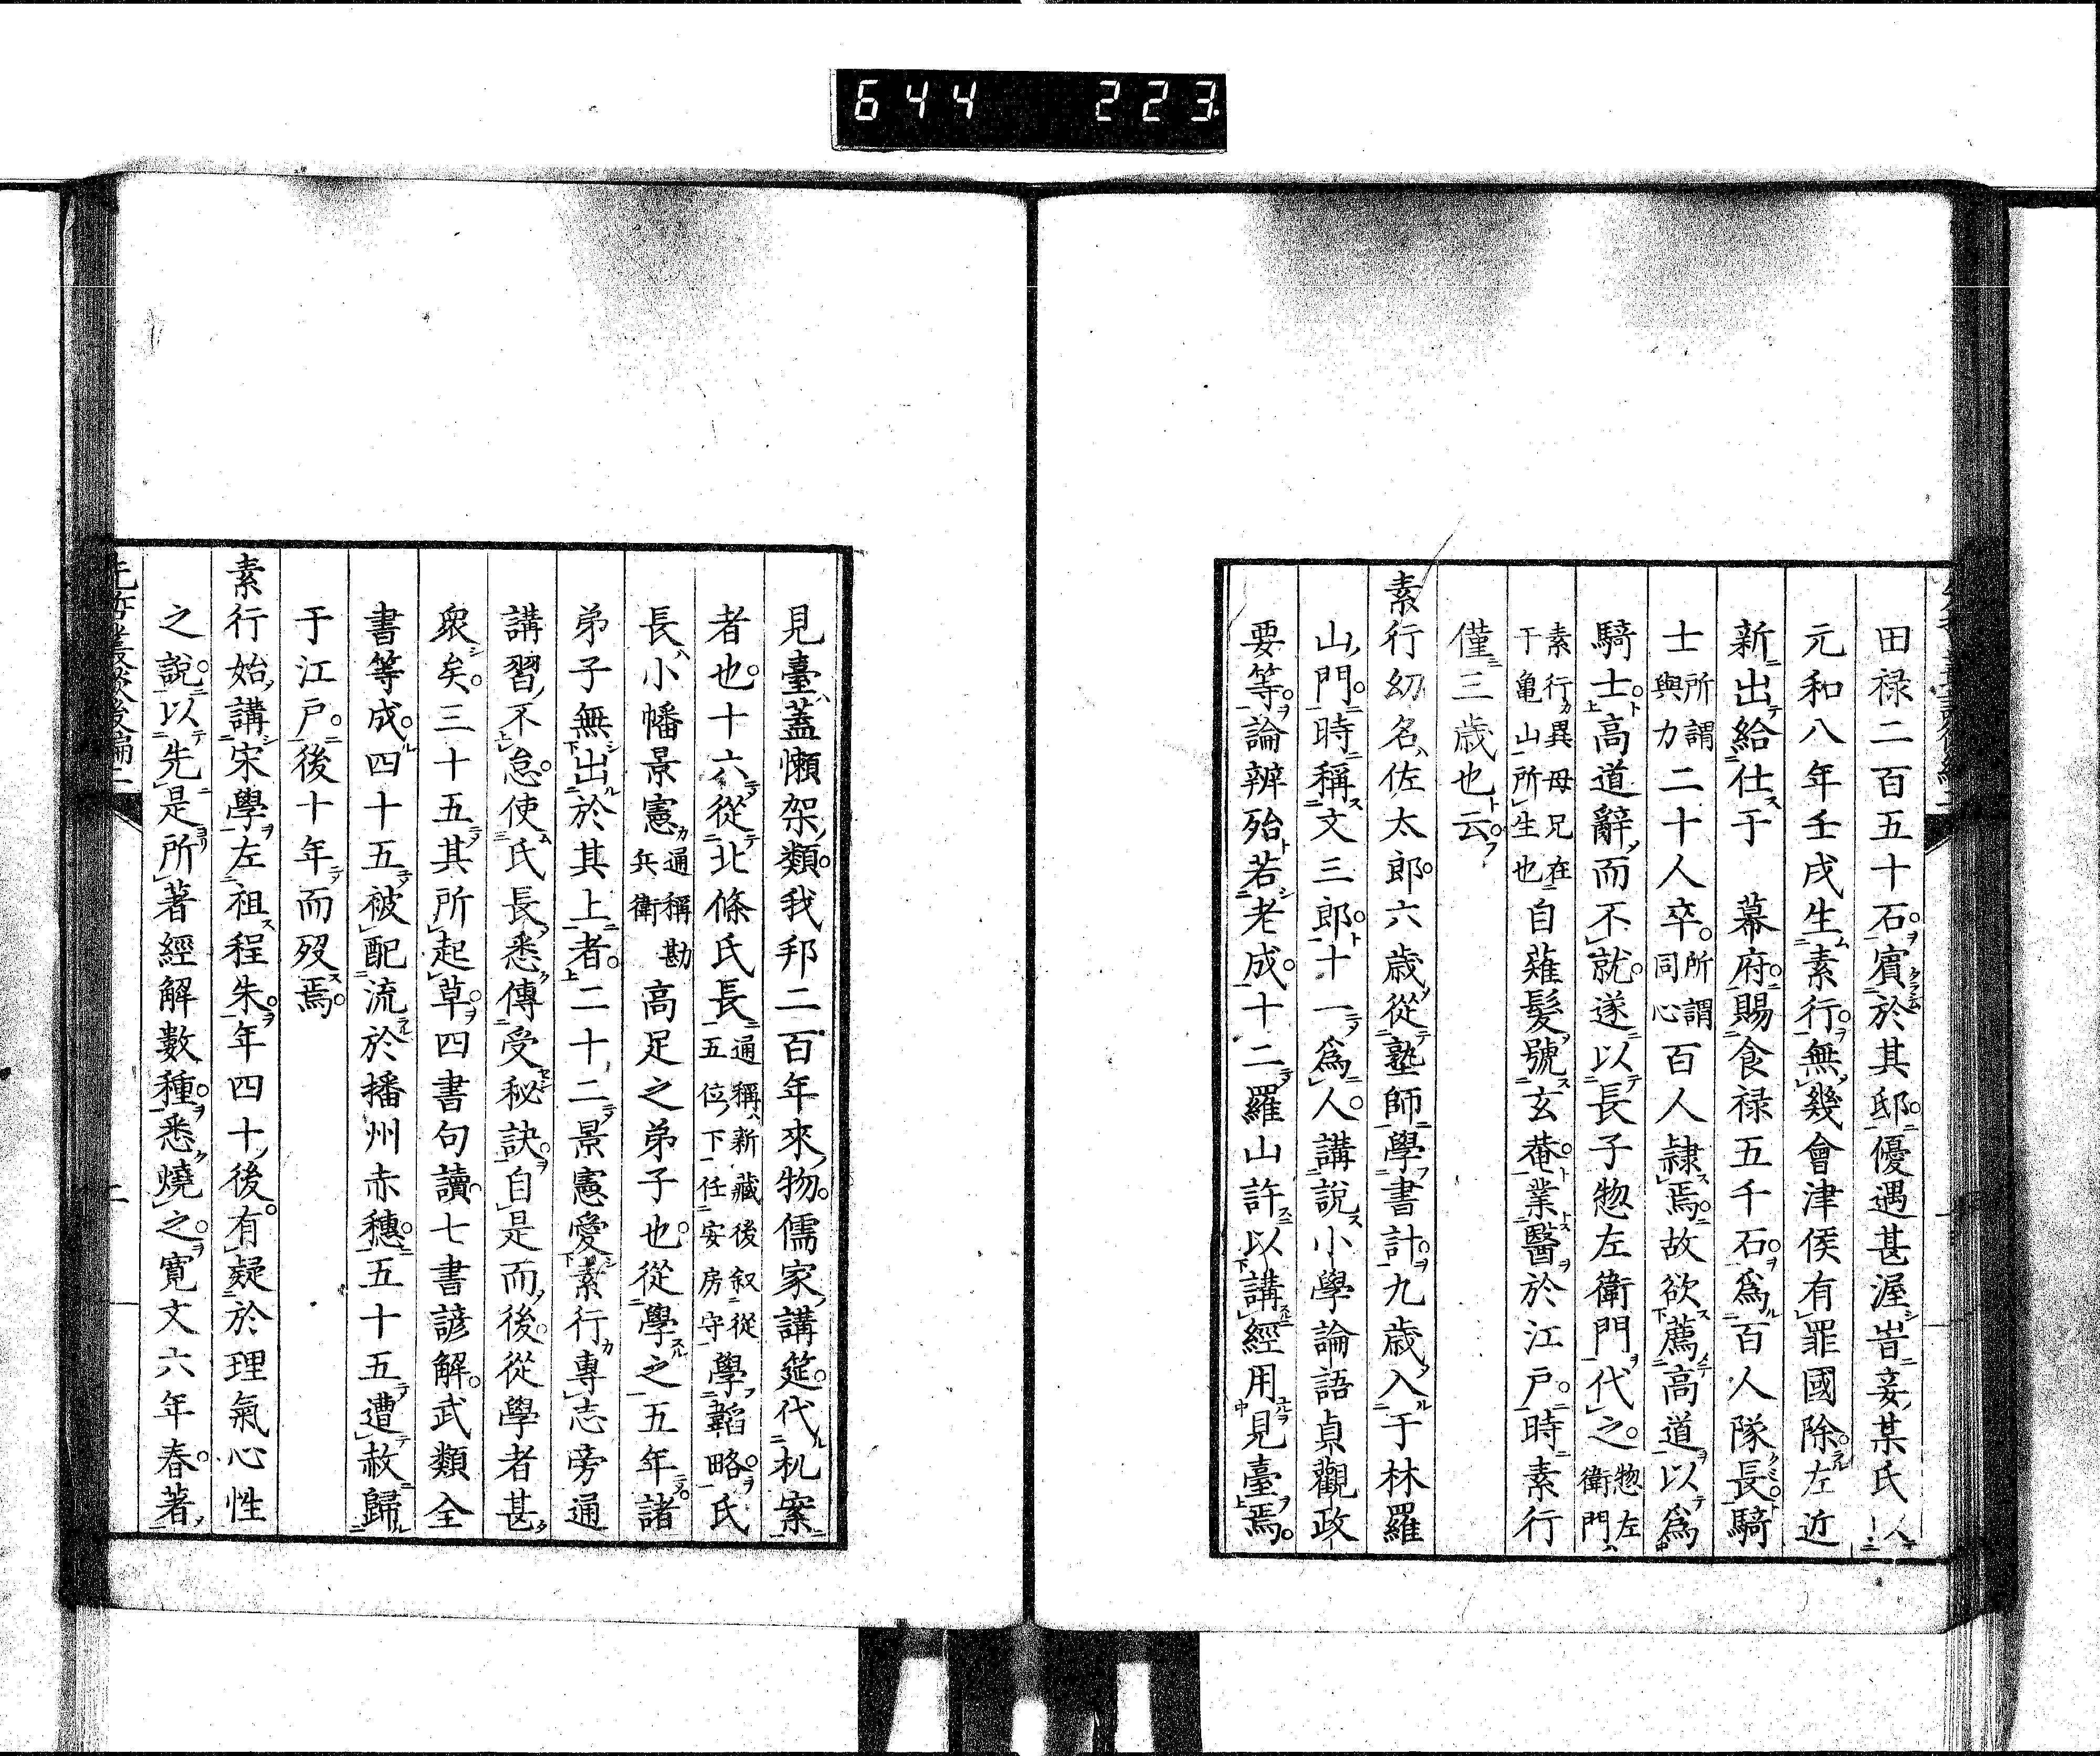 644 223
田祿二百五十石賓於其邸優遇甚渥畜妾某氏
元和八年壬戌生素行無幾會津侯有罪國除左近
新出給仕于 幕府賜食祿五千石爲百人隊長騎
士所謂與力二十人卒所謂同心百人隷焉故欲薦高道以爲
騎士高道辭而不就遂以長子惣左衛門代之惣左衛門
素行異母兄在于亀山所生也自薙髮號玄菴業醫於江戸時素行
僅三歳也云
素行幼名佐太郎六歳從塾師學書計九歳入于林羅
山門時稱文三郎十一爲人講說小學論語貞觀政
要等論辨殆若老成十二羅山許以講經用見臺焉
見臺蓋懶架類我邦二百年來物儒家講筵代机案
者也十六從北條氏長通稱新藏後叙從五位下任安房守學韜略氏
長小幡景憲通稱勘兵衛高足之弟子也從學之五年諸
弟子無出於其上者二十二景憲愛素行專志旁通
講習不怠使氏長悉傳受秘訣自是而後從學者甚
衆矣三十五其所起草四書句讀七書諺解武類全
書等成四十五被配流於播州赤穗五十五遭赦歸
于江戸後十年而歿焉
素行始講宋學左祖程朱年四十後有疑於理氣心性
之說以先是所著經解數種悉燒之寛文六年春著
先哲叢談後編二